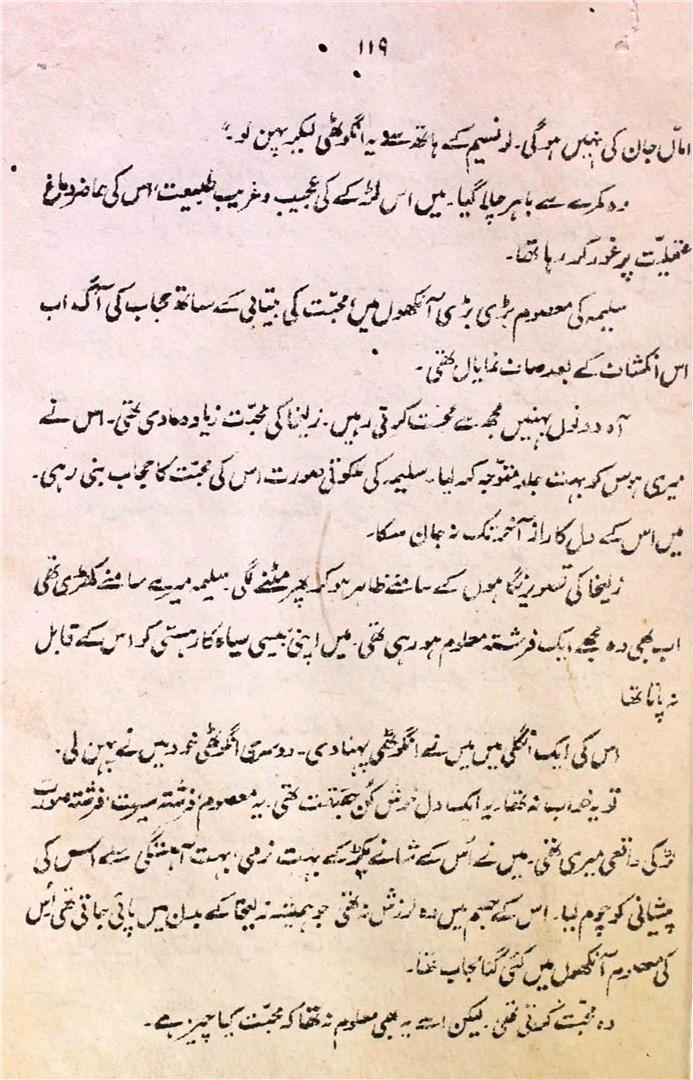 ۱۱۹
اماں جان کی نہیں ہوگی۔ لو نسیم کے ہاتھ سے یہ انگوٹھی لیکر پہن لو۔"
وہ کمرے سے باہر چلا گیا۔ میں اس لڑکے کی عجیب و غریب طبیعت، اس کی حاضر دماغ
عقلیت پر غور کر رہا تھا۔
سلیمہ کی معصوم بڑی بڑی آنکھوں میں محبت کی بیتابی کے ساتھ حجاب کی آگ اب
اس انکشاف کے بعد صاف نمایاں تھی۔
آہ دونوں بہنیں مجھ سے محبت کرتی رہیں۔ زلیخا کی محبت زیادہ مادی تھی۔ اس نے
میری ہوس کو بہت جلد متوجہ کر لیا۔ سلیمہ کی ملکوتی صورت اس کی محبت کا حجاب بنی رہی۔
میں اس کے دل کا راز آخر تک نہ جان سکا۔
زلیخا کی تصویر نگاہوں کے سامنے ظاہر ہو کر پھر مٹنے لگی۔ سلیمہ میرے سامنے کھڑی تھی
اب بھی وہ مجھے ایک فرشتہ معلوم ہو رہی تھی۔ میں اپنی جیسی سیاہ کار ہستی کو اس کے قابل
نہ پاتا تھا
اس کی ایک انگلی میں میں نے انگوٹھی پہنا دی۔ دوسری انگوٹھی خود میں نے پہن لی۔
تو یہ خواب نہ تھا۔ یہ ایک دل خوش کن حقیقت تھی۔ یہ معصوم، فرشتہ سیرت، فرشتہ صورت
لڑکی واقعی میری تھی۔ میں نے اس کے شانے پکڑ کے بہت نرمی، بہت آہستگی سے اس کی
پیشانی کو چوم لیا۔ اس کے جسم میں وہ لرزش نہ تھی جو ہمیشہ زلیخا کے بدن میں پائی جاتی تھی اُس
کی معصوم آنکھوں میں کئی گنا حجاب تھا۔
وہ محبت کرتی تھی۔ لیکن اسے یہ بھی معلوم نہ تھا کہ محبت کیا چیز ہے۔